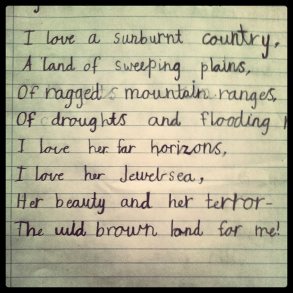 I love a sunburnt country,
A land of sweeping plains,
Of ragged's mountain ranges,
Of droughts and flooding
I love her far horizons,
I love her Jewel-sea,
Her beauty and her terror-
The wild brown land for me!